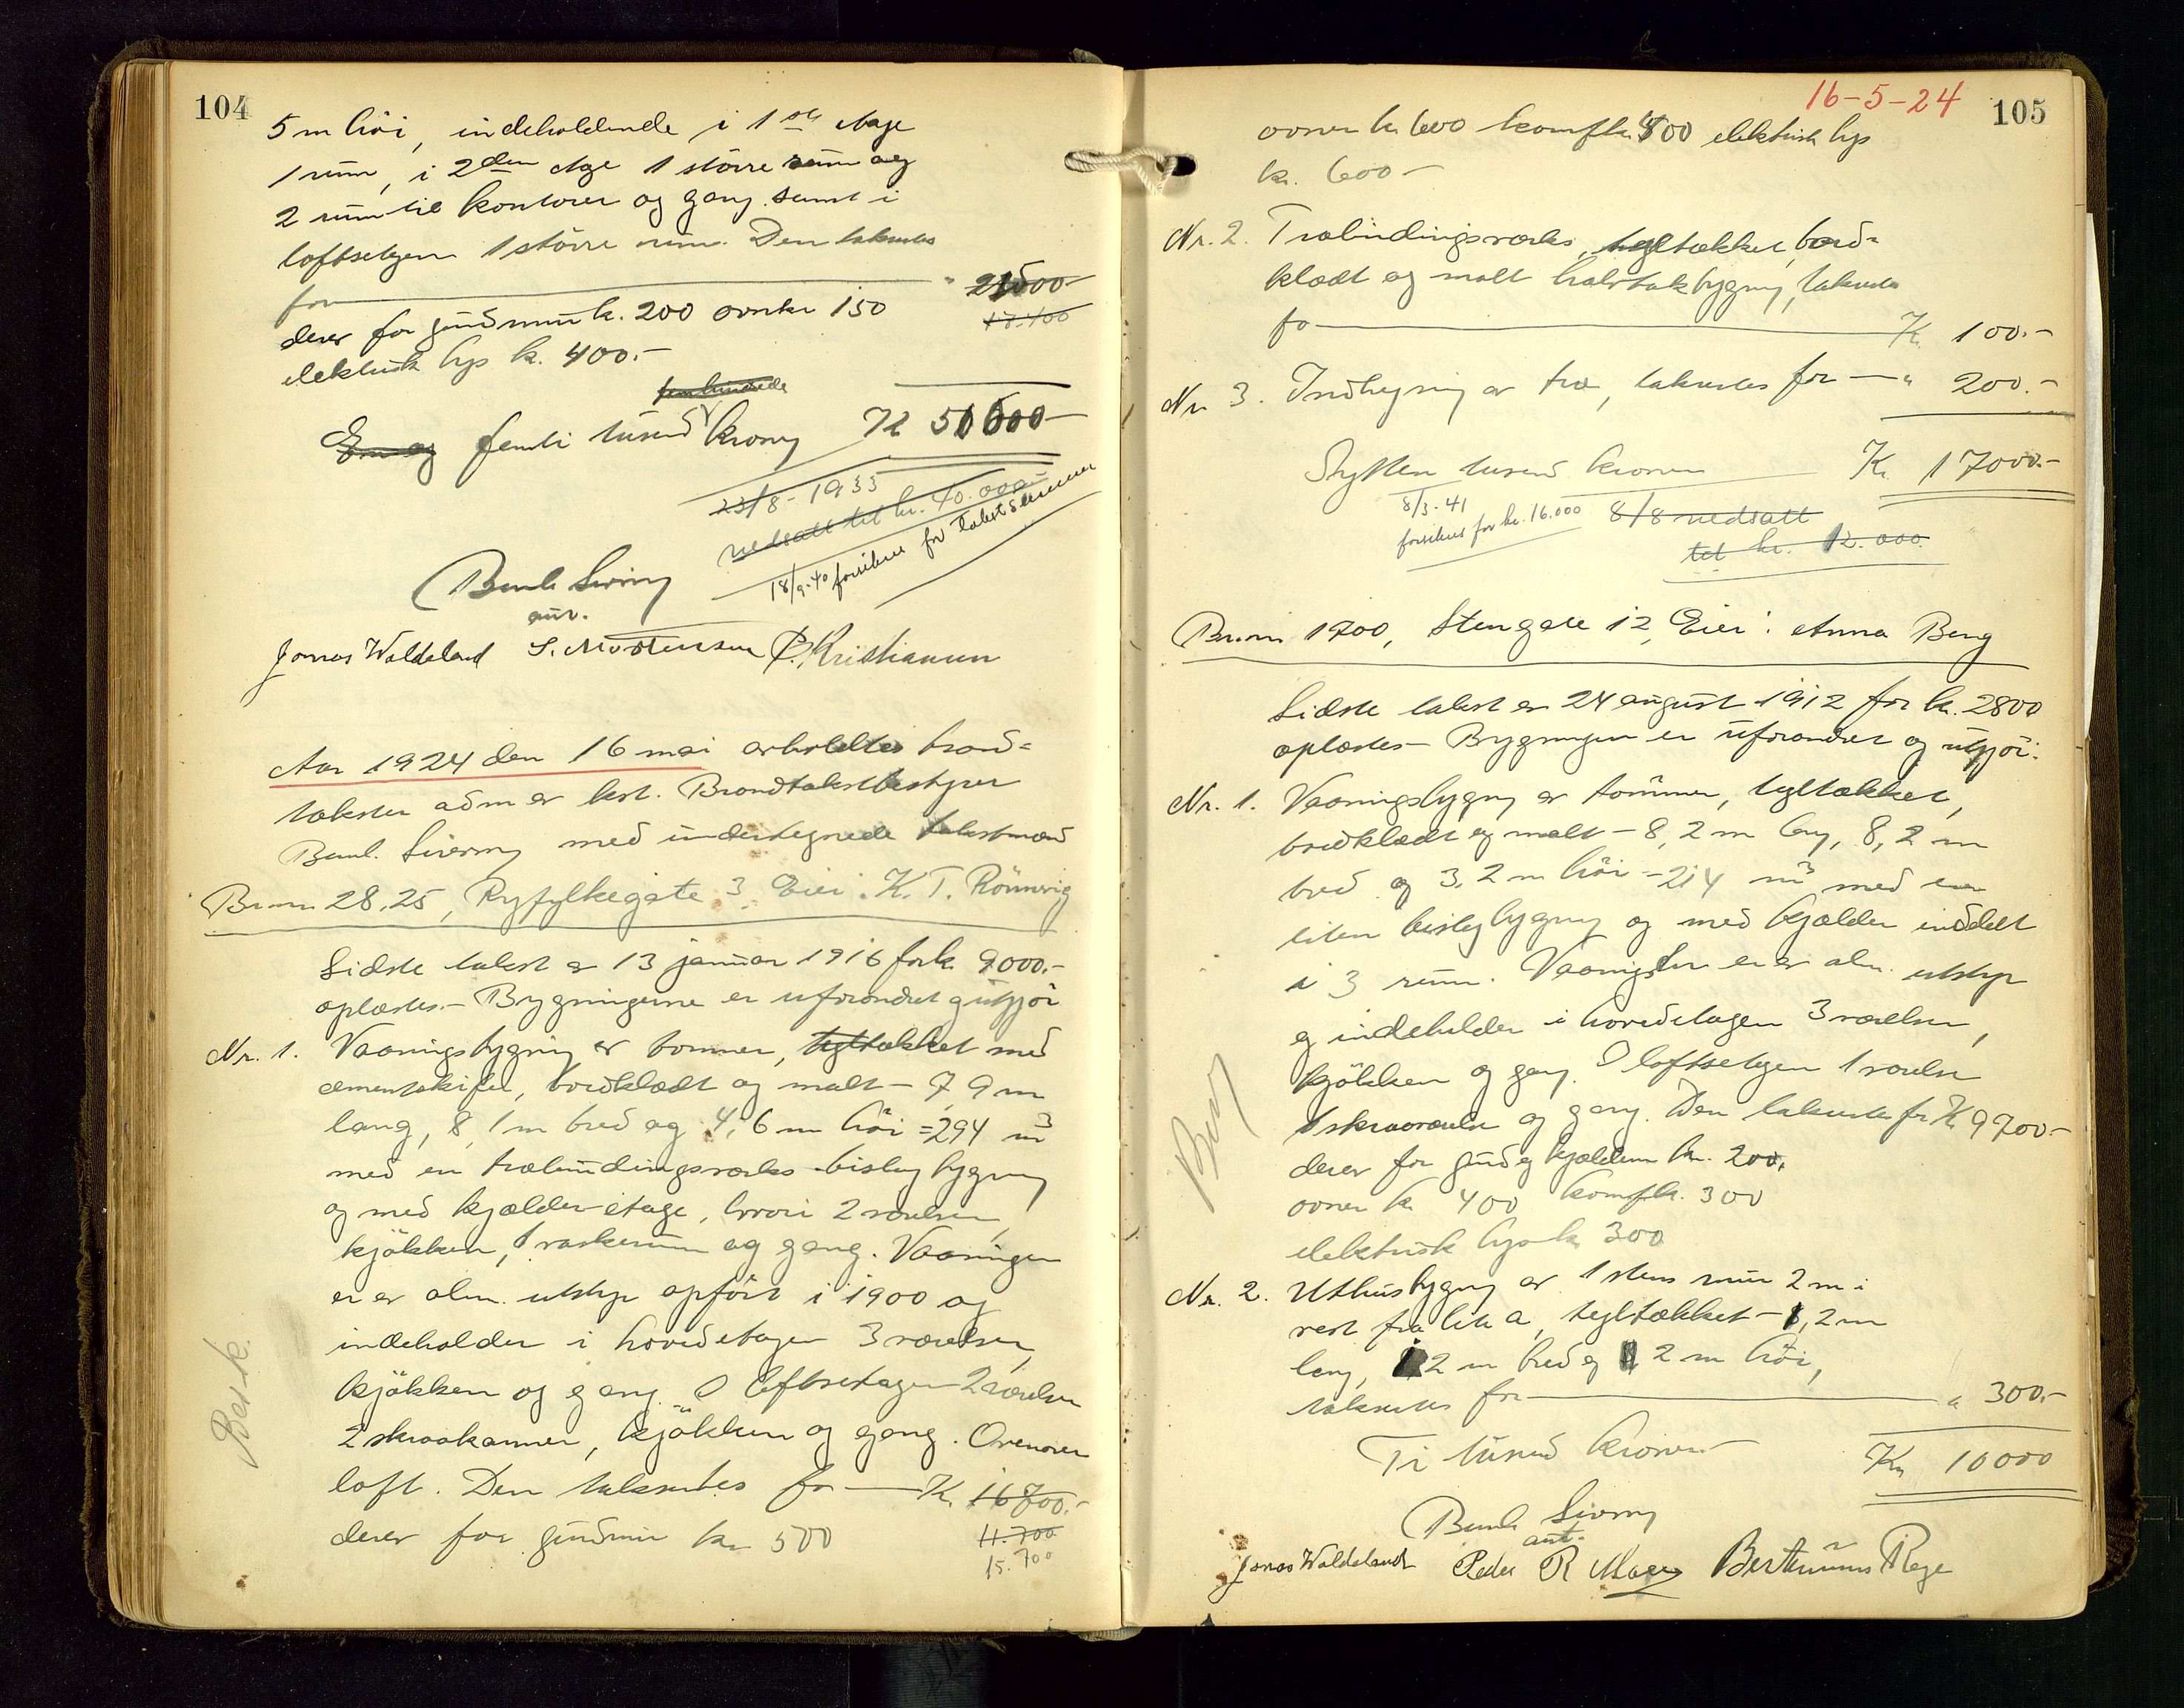 104
5 m höi, indeholdende i 1ste etage
1 rum, i 2den etge 1 större rum og
2 rum til kontorer og gang samt i
loftsetagen 1 större rum. Den takseres
for " 21500-
18.400
derav for grundmur kr. 200 ovnkr 150
elektrisk lys kr. 400.-
femhundrede
En og femti tusend kroner Kr 51600-
23/8-1933
nedsatt til kr. 40.000
18/9-40 forsikres for takstsummen
Jonas Waldeland S. Mortensen P. Kristiansen
Aar 1924 den 16 mai avholdtes brand-
takster adm av kst. Brandtakstbestyrer
med undertegnede takstmænd
Br.nr. 28,25, Ryfylkegate 3, Eier: K. T. Rönnevig
Sidste takst av 13 januar 1916 for kr. 9000.-
oplæstes.- Bygningerne er uforandret og utgjör
Nr. 1. Vaaningsbygning av tömmer, tegltækket med
cementskifer, bordklædt og malt - 7,9 m
lang, 8,1 m bred og 4,6 m höi = 294 m3
med en træbindingsverks bislagbygning
og med kjælder etage, hvori 2 værelser,
kjökken, 1 vaskerum og gang. Vaaningen
er av alm. utstyr opfört i 1900 og
indeholder i hovedetagen 3 værelser,
kjökken og gang. I loftsetagen 2 værelser
2 skraakammer, kjökken og gang. Ovenover
loft. Den takseres for Kr. 16700.-
derav for grundmur kr 500
11.700
15.700
Besk.
16-5-24
105
ovner kr 600 komfkr 400 elektrisk lys
kr. 600-
Nr. 2. Træbindingsværks, tegltækket, bord-
klædt og malt halvtakbygning, takseres
for Kr. 100.-
Nr. 3. Indhegning av træ, takseres for " 200.-
Sytten tusend kroner Kr. 17000.-
8/3-41
forsikres for kr. 16.000
8/8 nedsatt
til kr. 12.000
Br.nr. 1700, Stengate 12, Eier: Anna Berg
Sidste takst av 24 august 1912 for kr. 2800
oplæstes- Bygningen er uforandret og utgjör:
Nr. 1. Vaaningsbygning av tömmer, tegltækket,
bordklædt og malt - 8,2 m lang, 8,2 m
bred og 3,2 m höi - 214 m3 med en
liten bislagbygning og med kjælder inddelt
i 3 rum. Vaaningen er av alm. utstyr
og indeholder i hovedetagen 3 værelser,
kjökken og gang. I loftsetagen 1 værelse
1 skraaværelse og gang. Den takseres for Kr 9700.-
derav for grund og kjælderm kr. 200.
ovner kr 400 komfkr. 300
elektrisk lys kr 300
Nr. 2. Uthusbygning av 1 stens mur 2 m i
vest fra lit a, tegltækket - 1,2 m
lang, 1,2 m bred og 2 m höi,
takseres for " 300.-
Ti tusend kroner Kr 10000
Jonas Waldeland Peder R Bertinius Rege